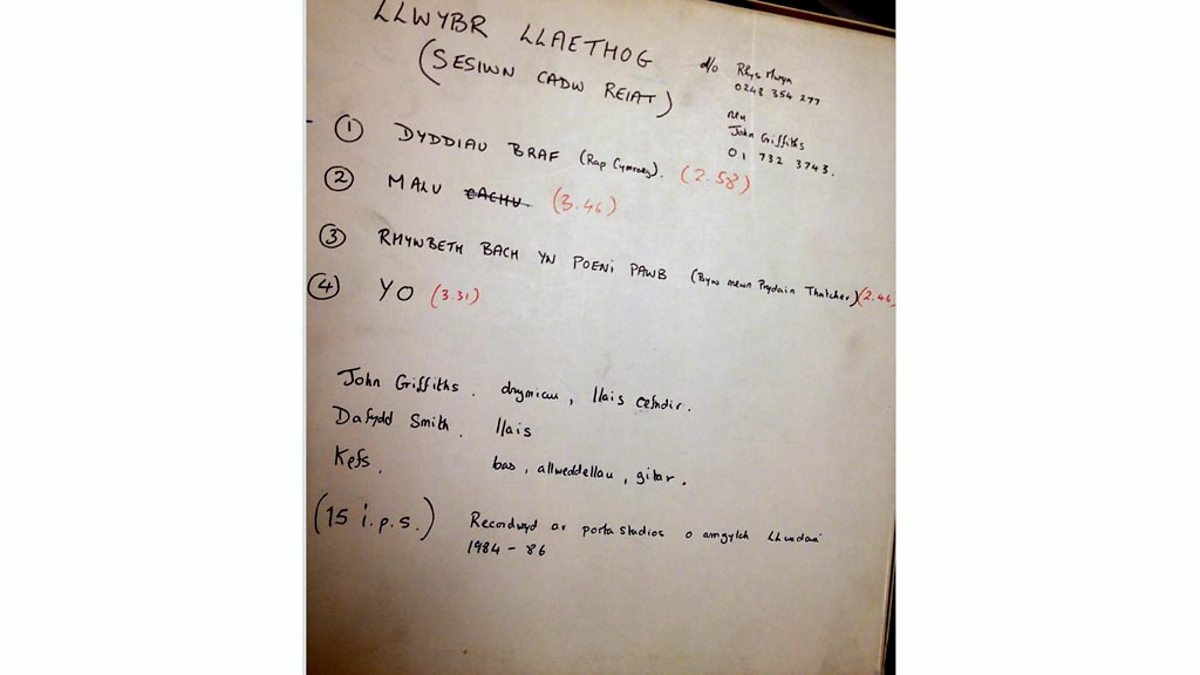 LLWYBR LLAETHOG
(SESIWN CADW REIAT)
d/o Rhys Mwyn
0248 354 277
neu
John Griffiths
01 732 3743.
① DYDDIAU BRAF (Rap Cymraeg). (2.58)
② MALU CACHU (3.46)
③ RHYWBETH BACH YN POENI PAWB (Byw mewn Prydain Thatcher) (2.46)
④ YO (3.31)
John Griffiths. drymiau, llais cefndir.
Dafydd Smith. llais
Kefs. bas, allweddellau, gitar.
(15 i.p.s.) Recordwyd ar porta studios o amgylch Llundain
1984 - 86